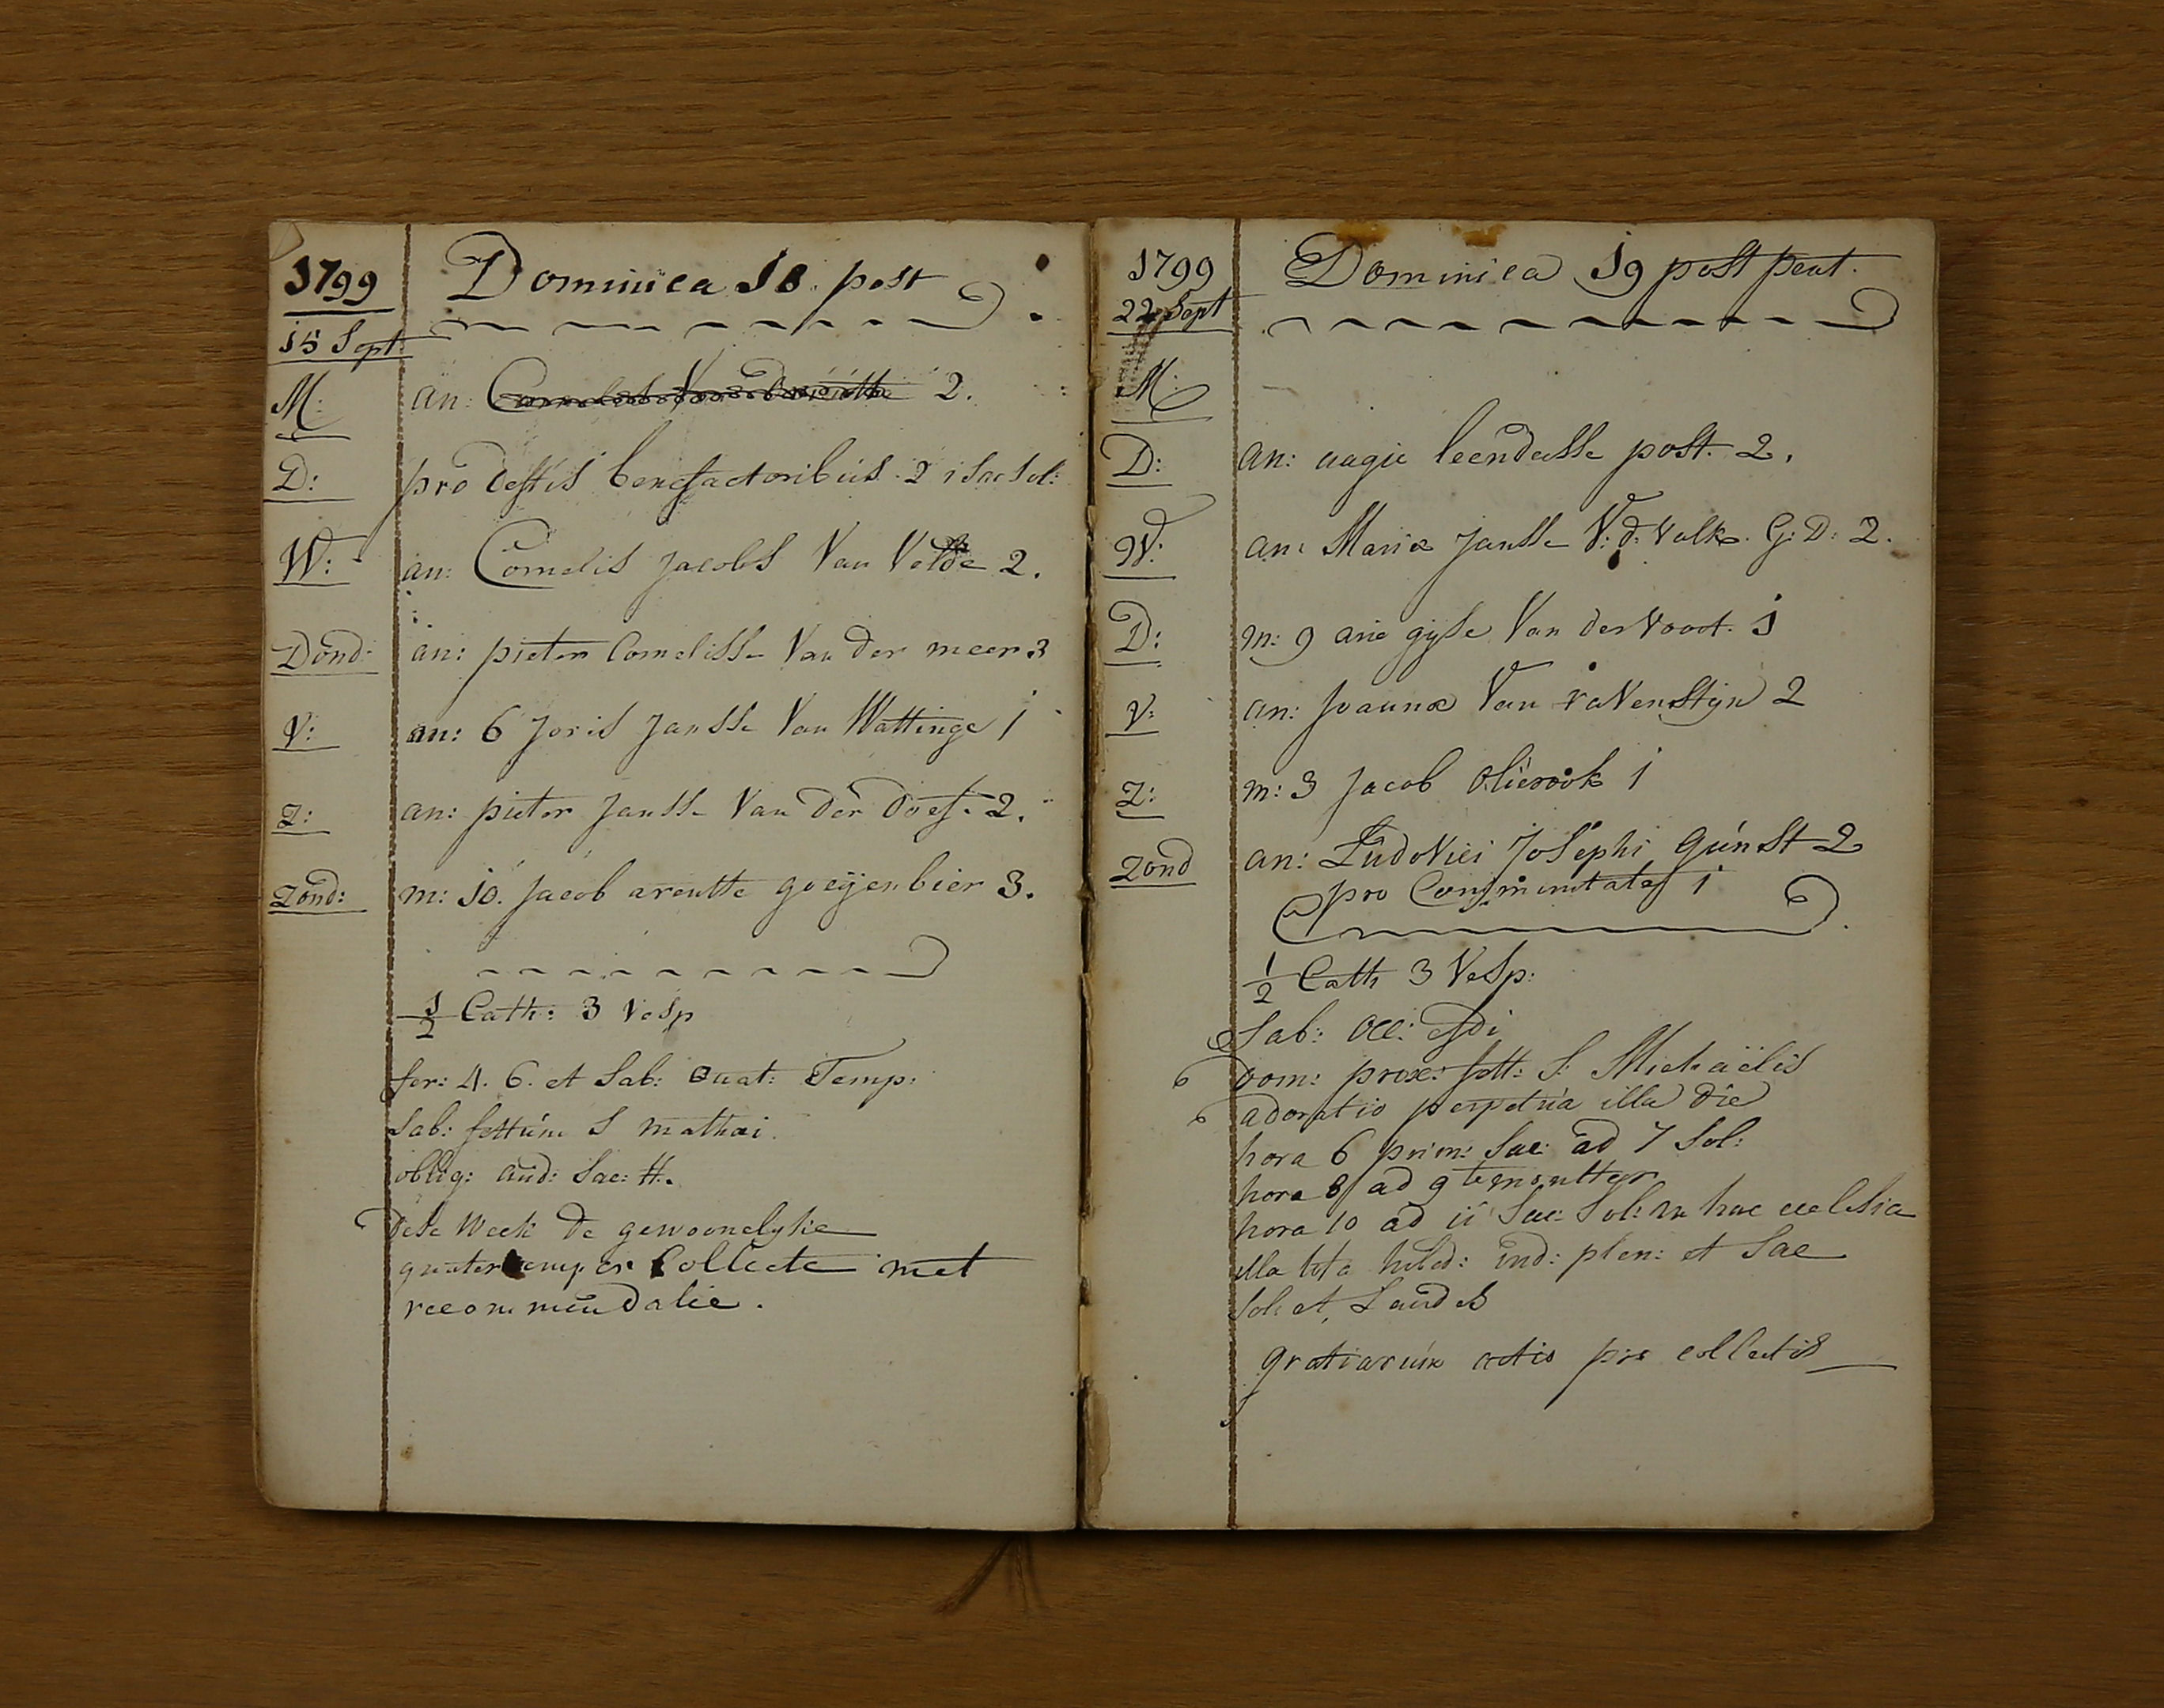 1799
Dominica 18. post
15 Sept.
M: an: 2.
D: pro desstis benefactoribus 2 i Sac Sol:
W: an: Cornelis Jacobs Van Velde 2.
Dond: an: pieter Cornelisse Van der meer 3
V: an: 6 Joris Jansse Van Wattinge 1
Z: an: pieter Jansse Van der Does. 2.
Zond: m: 10. Jacob arentse goeijenbier 3.
1/2 Cath: 3 Vesp
fer: 4. 6. et Sab: Quat: Temp:
Sab: festum S mathei
oblig: aud: Sac: H.
Dese Week de gewoonelyke
quatertemper Collecte met
recommendatie.
1799
Dominica 19 post pent.
22 Sept
M:
D: an: aagie leendersse post. 2.
W: an: Maria Jansse V: d: Valk. G: D: 2.
D: m: 9 arie gyse Van der Voort. 1
V: an: Joanna Van raVenstijn 2
Z: m: 3 Jacob Olierook 1
Zond an: LudoVici Josephi Gunst 2
pro Communitate 1
1/2 Cath 3 Vesp:
Sab: occ:
Dom: prox: fest: S: Michaëlis
adoratio perpetua illa die
hora 6 prim: Sac: ad 7 Sol:
hora 8 ad 9
hora 10 ad 11 Sac: Sol: in hac ecclesia
illa tota hebd: ind: plen: et Sac
Sol: et Laudes
gratiarum actio pro collectis